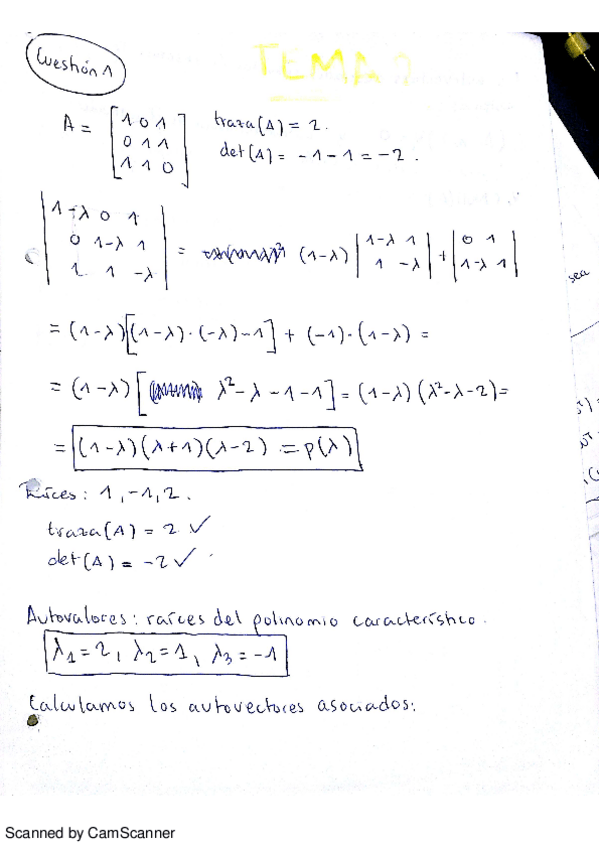 Cuestión 1
TEMA
A = [1 0 1 traza(A) = 2.
0 1 1 det(A) = -1-1 = -2.
1 1 0]
|1-λ 0 1|
|0 1-λ 1| = (1-λ) |1-λ 1| + |0 1|
|1 1 -λ| |1 -λ| |1-λ 1|
= (1-λ)[(1-λ)·(-λ)-1] + (-1)·(1-λ) =
= (1-λ)[ λ²-λ-1-1] = (1-λ)(λ²-λ-2) =
= (1-λ)(λ+1)(λ-2) = p(λ)
Raíces: 1, -1, 2.
traza(A) = 2 ✓
det(A) = -2 ✓
Autovalores: raíces del polinomio característico.
λ₁=2, λ₂=1, λ₃=-1
Calculamos los autovectores asociados:
sea
Scanned by CamScanner